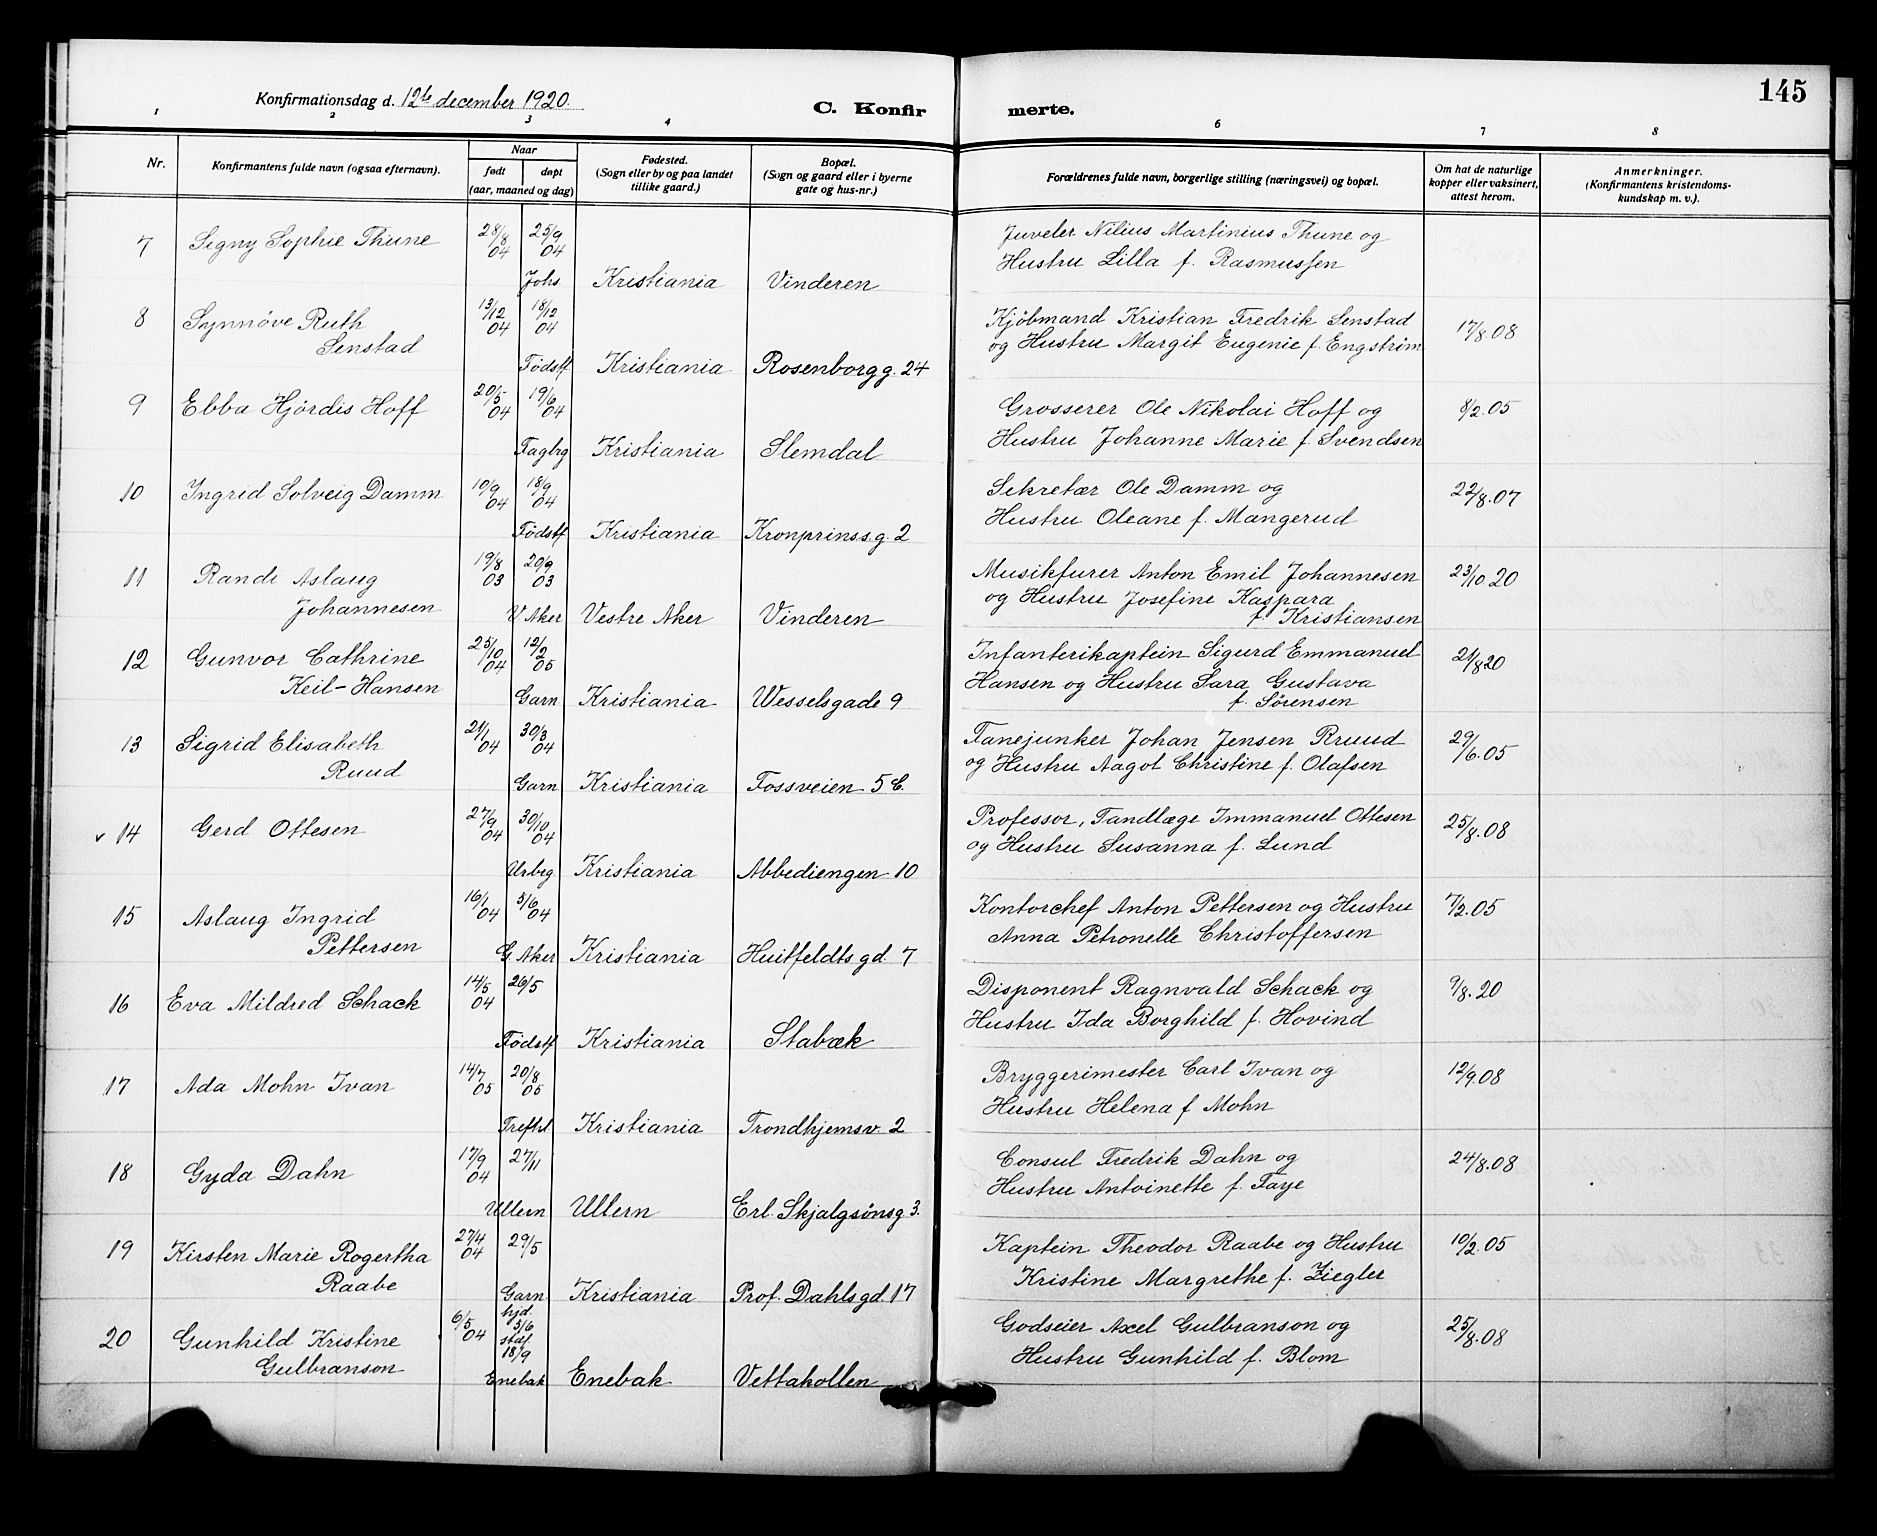 145
Konfirmationsdag d. 12te december 1920.
C. Konfir merte.
1 2 3 4 6 7 8
Nr.
Konfirmantens fulde navn (ogsaa efternavn).
Naar
født døpt
(aar, maaned og dag)
Fødested.
(Sogn eller by og paa landet
tillike gaard.)
Bopæl.
(Sogn og gaard eller i byerne
gate og hus-nr.)
Forældrenes fulde navn, borgerlige stilling (næringsvei) og bopæl.
Om hat de naturlige
kopper eller vaksinert,
attest herom.
Anmerkninger.
(Konfirmantens kristendoms-
kundskap m. v.).
7 Signy Sophie Thune 28/8 04 25/9 04
Johs Kristiania Vinderen
Juveler Nilius Martinius Thune og
Hustru Lilla f. Rasmussen
8 Synnøve Ruth
Senstad 13/12 04 18/12 04
Fødstf Kristiania Rosenborgg. 24
Kjøbmand Kristian Fredrik Senstad
og Hustru Margit Eugenie f. Engstrøm
17/8.08
9 Ebba Hjørdis Hoff 20/5 04 19/6 04
Fagbg Kristiania Slemdal
Grosserer Ole Nikolai Hoff og
Hustru Johanne Marie f. Svendsen
8/2.05
10 Ingrid Solveig Damm 10/9 04 18/9 04
Fødstf Kristiania Kronprinssg. 2
Sekretær Ole Damm og
Hustru Oleane f. Mangerud
22/8.07
11 Randi Aslaug
Johannesen 19/8 03 20/9 03
V. Aker Vestre Aker Vinderen
Musikfurer Anton Emil Johannesen
og Hustru Josefine Kaspara
f. Kristiansen
23/10 20
12 Gunvor Cathrine
Keil-Hansen 25/10 04 12/2 05
Garn Kristiania Wesselsgade 9
Infanterikaptein Sigurd Emmanuel
Hansen og Hustru Sara Gustava
f. Sørensen
21/8 20
13 Sigrid Elisabeth
Ruud 21/1 04 30/3 04
Garn Kristiania Fossveien 5 C.
Fanejunker Johan Jensen Rruud
og Hustru Aagot Christine f. Olafsen
29/6.05
v 14 Gerd Ottesen 27/9 04 30/10 04
Urbeg Kristiania Abbediengen 10
Professor, Tandlæge Immanuel Ottesen
og Hustru Susanna f. Lund
25/8.08
15 Aslaug Ingrid
Pettersen 16/1 04 5/6 04
G Aker Kristiania Huitfeldts gd. 7
Kontorchef Anton Pettersen og Hustru
Anna Petronelle Christoffersen
7/2.05
16 Eva Mildred Schack 14/5 04 26/5
Fødstf Kristiania Stabæk
Disponent Ragnvald Schack og
Hustru Ida Borghild f. Hovind
9/8.20
17 Ada Mohn Ivan 14/7 05 20/8 05
Trefhl Kristiania Trondhjemsv. 2
Bryggerimester Carl Ivan og
Hustru Helena f Mohn
12/9.08
18 Gyda Dahn 17/9 04 27/11
Ullern Ullern Erl. Skjalgsønsg 3.
Consul Fredrik Dahn og
Hustru Antoinette f. Faye
24/8.08
19 Kirsten Marie Rogertha
Raabe 27/4 04 29/5
Garn Kristiania Prof. Dahlsgd. 17
Kaptein Theodor Raabe og Hustru
Kristine Margrethe f. Ziegler
10/2.05
20 Gunhild Kristine
Gulbranson 6/5 04 hjd. 5/6 stæf. 18/9
Enebak Enebak Vettakollen
Godseier Axel Gulbranson og
Hustru Gunhild f. Blom
25/8.08